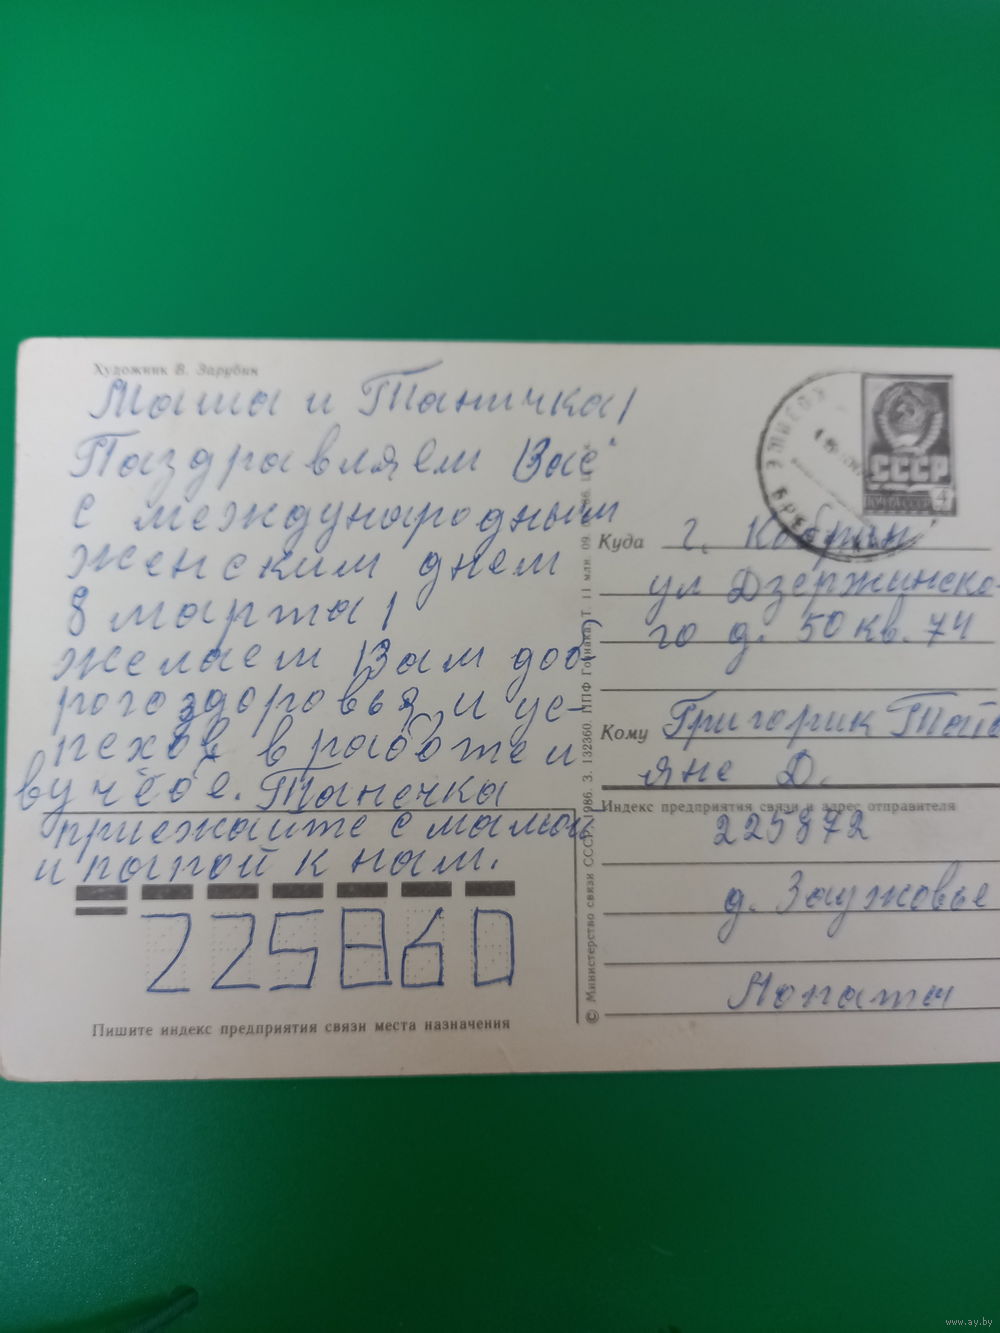 Художник В. Зарубин
Маша и Таничка!
Паздравляем Вас
с международным
женским днем
8 марта!
желаем Вам доб
рого здоровья и ус-
пехов в работе и
в учёбе. Танечка
приезжайте с мамой
и папой к нам.
225860
Пишите индекс предприятия связи места назначения
© Министерство связи СССР, 1986. З. 132360. ППФ Гознака. Т. 11 млн 09.
СССР
ПОЧТА СССР
4
Куда г. Кобрин
ул Дзержинско-
го д. 50 кв. 74
Кому Григорчик Тать
яне Д.
Индекс предприятия связи и адрес отправителя
225872
д. Залужовье
www.ay.by